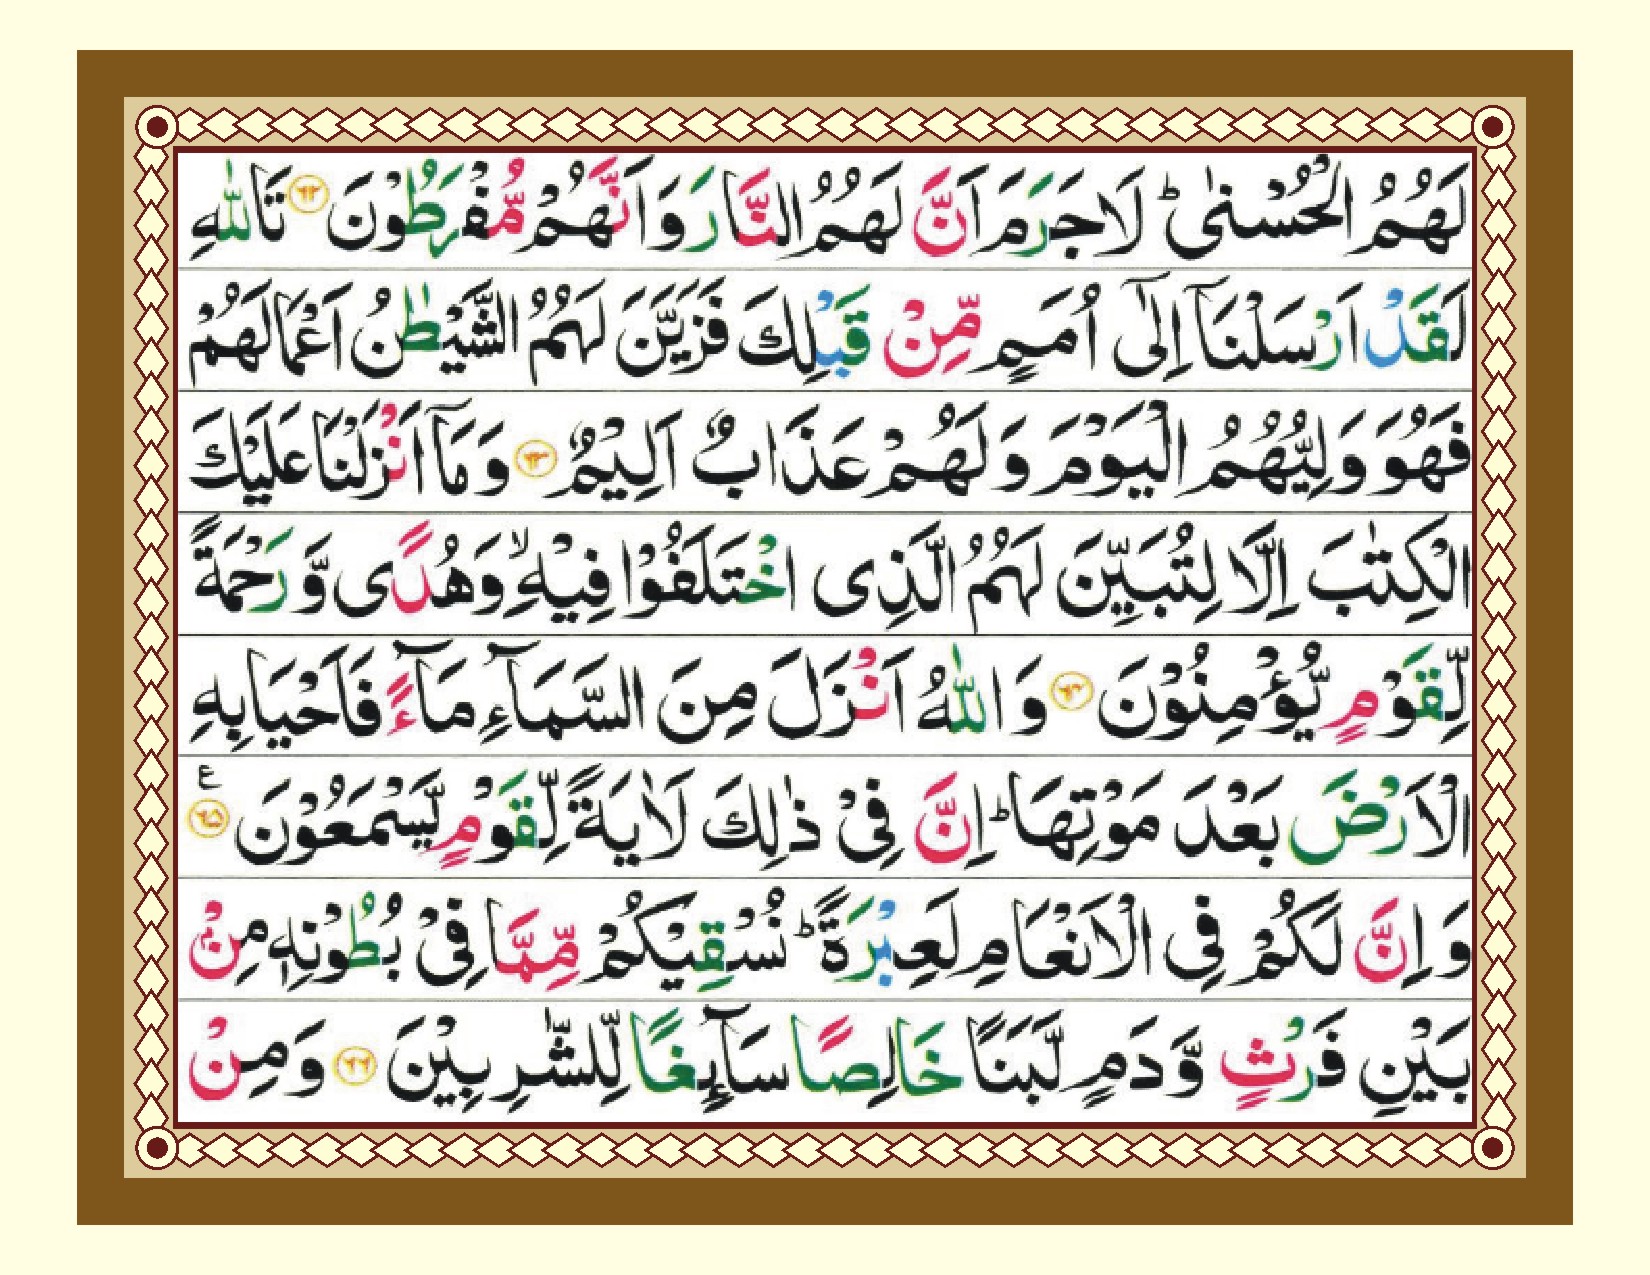 لَهُمُ الْحُسْنٰىؕ لَا جَرَمَ اَنَّ لَهُمُ النَّارَ وَاَنَّهُمْ مُّفْرَطُوْنَ ﴿۶۲﴾ تَاللّٰهِ
لَقَدْ اَرْسَلْنَاۤ اِلٰۤى اُمَمٍ مِّنْ قَبْلِكَ فَزَيَّنَ لَهُمُ الشَّيْطٰنُ اَعْمَالَهُمْ
فَهُوَ وَلِيُّهُمُ الْيَوْمَ وَلَهُمْ عَذَابٌ اَلِيْمٌ ﴿۶۳﴾ وَمَاۤ اَنْزَلْنَا عَلَيْكَ
الْكِتٰبَ اِلَّا لِتُبَيِّنَ لَهُمُ الَّذِى اخْتَلَفُوْا فِيْهِۙ وَهُدًى وَّرَحْمَةً
لِّقَوْمٍ يُّؤْمِنُوْنَ ﴿۶۴﴾ وَاللّٰهُ اَنْزَلَ مِنَ السَّمَآءِ مَآءً فَاَحْيَا بِهِ
الْاَرْضَ بَعْدَ مَوْتِهَاؕ اِنَّ فِىْ ذٰلِكَ لَاٰيَةً لِّقَوْمٍ يَّسْمَعُوْنَ ﴿۶۵﴾ ع
وَاِنَّ لَكُمْ فِى الْاَنْعَامِ لَعِبْرَةًؕ نُسْقِيْكُمْ مِّمَّا فِىْ بُطُوْنِهٖ مِنْۢ
بَيْنِ فَرْثٍ وَّدَمٍ لَّبَنًا خَالِصًا سَآئِغًا لِّلشّٰرِبِيْنَ ﴿۶۶﴾ وَمِنْ